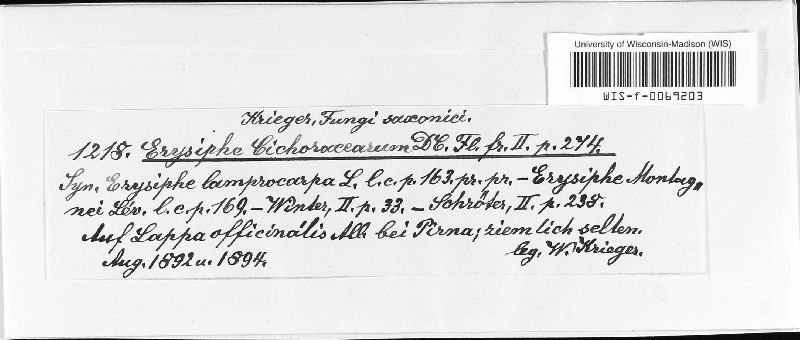 University of Wisconsin-Madison (WIS)
WIS-f-0069203
Krieger, Fungi saxonici.
1218. Erysiphe Cichoracearum DC. Fl. fr. II. p. 274.
Syn. Erysiphe lamprocarpa L. l. c. p. 163. pr. pr. – Erysiphe Montag„
nei Lév. l. c. p. 169. – Winter, II. p. 33. – Schröter, II. p. 238.
Auf Lappa officinális All. bei Pirna; ziemlich selten.
Aug. 1892 u. 1894. leg. W. Krieger.